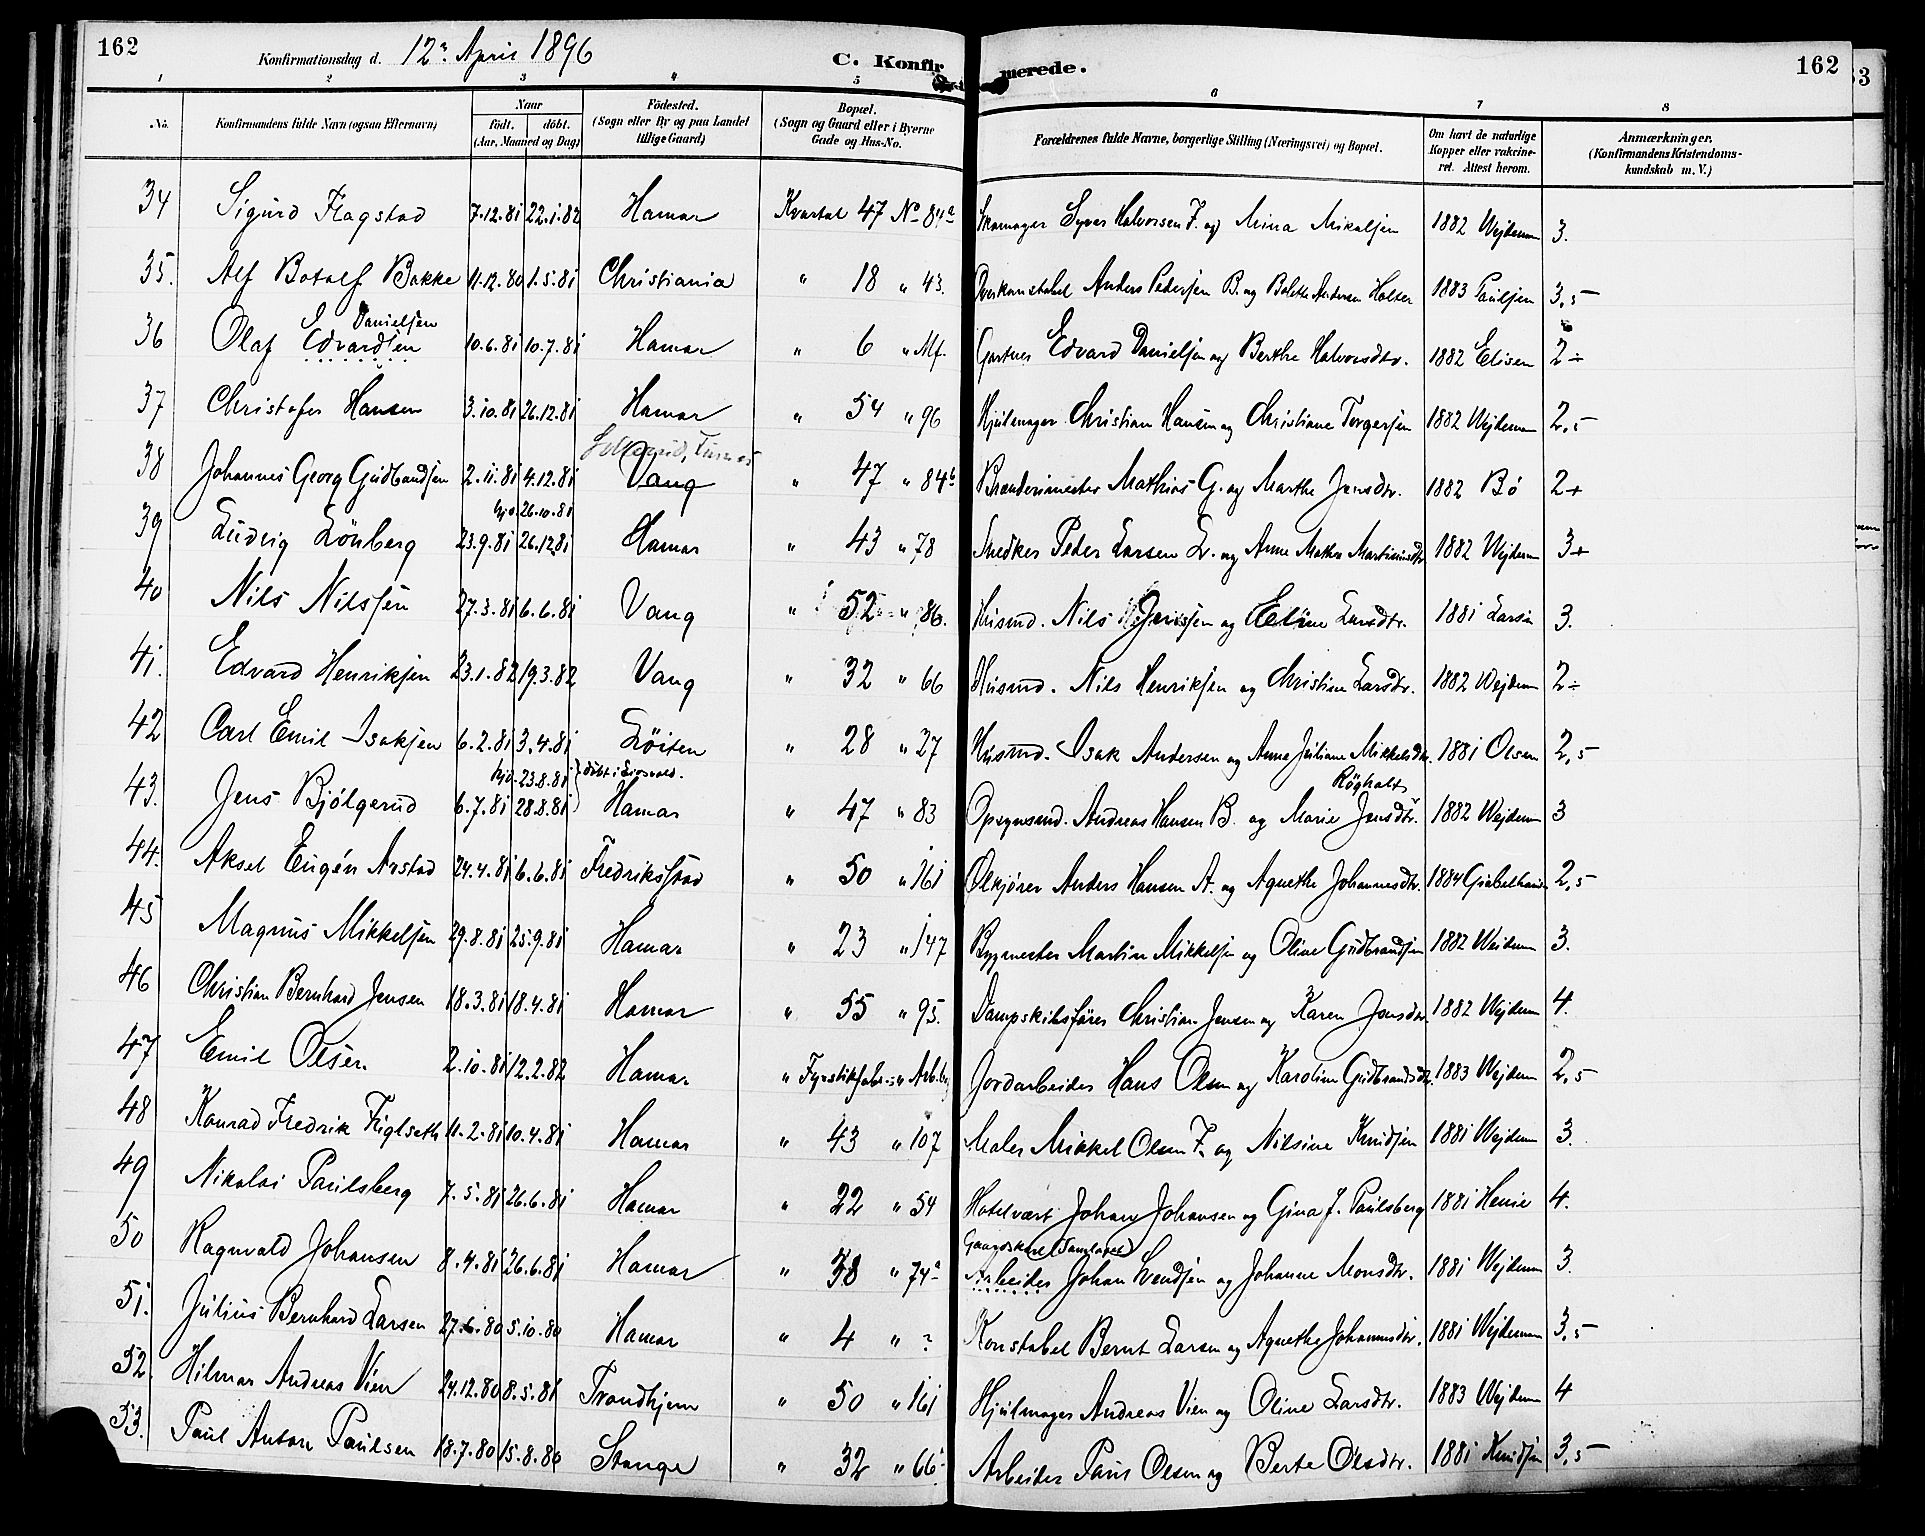 162
Konfirmationsdag d. 12 April 1896
C. Konfirmerede.
162
1 2 3 " 5 6 7 8
No. Konfirmandens fulde Navn (ogsaa Efternavn) Naar födt. döbt. (Aar, Maaned og Dag) Födested. (Sogn eller By og paa Landet tillige Gaard) Bopæl. (Sogn og Gaard eller i Byerne Gade og Hus-No. Forældrenes fulde Navne, borgerlige Stilling (Næringsvei) og Bopæl. Om havt de naturlige Kopper eller vakcineret. Attest herom. Anmærkninger. (Konfirmandens Kristendomskundskab m. V.)
34 Sigurd Flagstad 7.12.81 22.1.82 Hamar Kvartal 47 No 84a Skomager Syver Halvorsen F. og Mina Mikalsen 1882 Wejdem 3.
35. Alf Botolf Bakke 11.12.80 1.5.81 Christiania " 18 " 43. Overkonstabel Anders Pedersen B. og Bolette Andersen Holter 1883 Paulsen 3,5
Danielsen
36 Olaf Edvardsen 10.6.81 10.7.81 Hamar " 6 " Mf. Gartner Edvard Danielsen og Berthe Halvorsdtr. 1882 Elisen 2÷
37 Christofer Hansen 3.10.81 26.12.81 Hamar " 54 " 96 Hjulmager Christian Hansen og Christiane Torgersen 1882 Wejdem 2,5
38 Johannes Georg Gudbrandsen 2.11.81 4.12.81 Vang " 47 " 84b Brænderimester Mathias G. og Marthe Jensdtr. 1882 Bö 2+
hjd. 26.10.81
39 Ludvig Lönberg 23.9.81 26.12.81 Hamar " 43 " 78 Snedker Peder Larsen L. og Anne Mathea Martiniusdtr 1882 Wejdem 3+
40 Nils Nilssen 27.3.81 6.6.81 Vang " 52 " 86. Husmd. Nils Jenssen og Eline Larsdtr. 1881 Larsen 3.
41. Edvard Henriksen 23.1.82 19.3.82 Vang " 32 " 66 Husmd. Nils Henriksen og Christine Larsdtr. 1882 Wejdem 2÷
42 Carl Emil Isaksen 6.2.81 3.4.81 Löiten " 28 " 27 Husmd. Isak Andersen og Anne Juliane Mikkelsdtr. 1881 Olsen 2,5
hjd. 23.8.81 döbt i Eidsvold. Rögholt
43. Jens Bjölgerud 6.7.81 28.8.81 Hamar " 47 " 83 Opsynsmd. Andreas Hansen B. og Marie Jensdtr. 1882 Wejdem 3
44. Aksel Eugén Aastad 24.4.81 6.6.81 Fredriksstad " 50 " 161 Ölkjörer Anders Hansen A. og Agnethe Johannesdtr. 1884 2,5
45 Magnus Mikkelsen 29.8.81 25.9.81 Hamar " 23 " 147 Bygmester Martin Mikkelsen og Oline Gudbrandsen 1882 Wejdem 3.
46 Christian Bernhard Jensen 18.3.81 18.4.81 Hamar " 55 " 95. Dampskibsförer Christian Jensen og Karen Jensdtr. 1882 Wejdem 4.
47 Emil Olsen 2.10.81 12.2.82 Hamar " Fyrstikfabr. " Arb.b. Jordarbeider Hans Olsen og Karoline Gudbrandsdtr. 1883 Wejdem 2,5
48 Konrad Fredrik Figlseth 11.2.81 10.4.81 Hamar " 43 " 107 Maler Mikkel Olsen F. og Nilsine Knudsen 1881 Wejdem 3.
49 Nikolai Paulsberg 7.5.81 26.6.81 Hamar " 22 " 54 Hotelvært Johan Johansen og Gina J. Paulsberg 1881 Henie 4.
Gaardskarl (Samlaget)
50 Ragnvald Johansen 8.4.81 26.6.81 Hamar " 38 " 74a Arbeider Johan Svendsen og Johanne Monsdtr. 1881 Wejdem 3.
51. Julius Bernhard Larsen 27.6.80 5.10.80 Hamar " 4 " ? Konstabel Bernt Larsen og Agnethe Johannesdtr. 1881 Wejdeman 3,5
52. Hilmar Andreas Vien 24.12.80 8.5.81 Trondhjem " 50 " 161 Hjulmager Andreas Vien og Oline Larsdtr. 1883 Wejdem 4
53. Paul Anton Paulsen 18.7.80 15.8.80 Stange " 32 " 66 Arbeider Paul Olsen og Berte Olsdtr. 1881 Knudsen 3,5